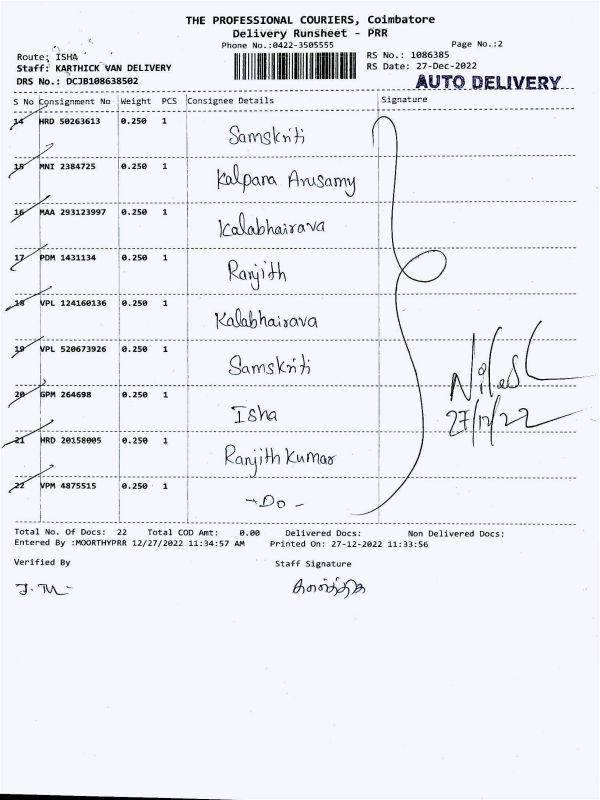 THE PROFESSIONAL COURIERS, Coimbatore
Delivery Runsheet - PRR
Phone No.:0422-3505555 Page No.:2
Route: ISHA RS No.: 1086385
Staff: KARTHICK VAN DELIVERY RS Date: 27-Dec-2022
DRS No.: DCJB108638502 AUTO DELIVERY
S No Consignment No Weight PCS Consignee Details Signature
14 HRD 50263613 0.250 1 Samskriti
15 MNI 2384725 0.250 1 Kalpara Arusamy
16 MAA 293123997 0.250 1 Kalabhairava
17 PDM 1431134 0.250 1 Ranjith
18 VPL 124160136 0.250 1 Kalabhairava
19 VPL 520673926 0.250 1 Samskriti
20 GPM 264698 0.250 1 Isha
21 HRD 20158005 0.250 1 Ranjith Kumar
22 VPM 4875515 0.250 1 -Do-
27/12/22
Total No. Of Docs: 22 Total COD Amt: 0.00 Delivered Docs: Non Delivered Docs:
Entered By :MOORTHYPRR 12/27/2022 11:34:57 AM Printed On: 27-12-2022 11:33:56
Verified By Staff Signature